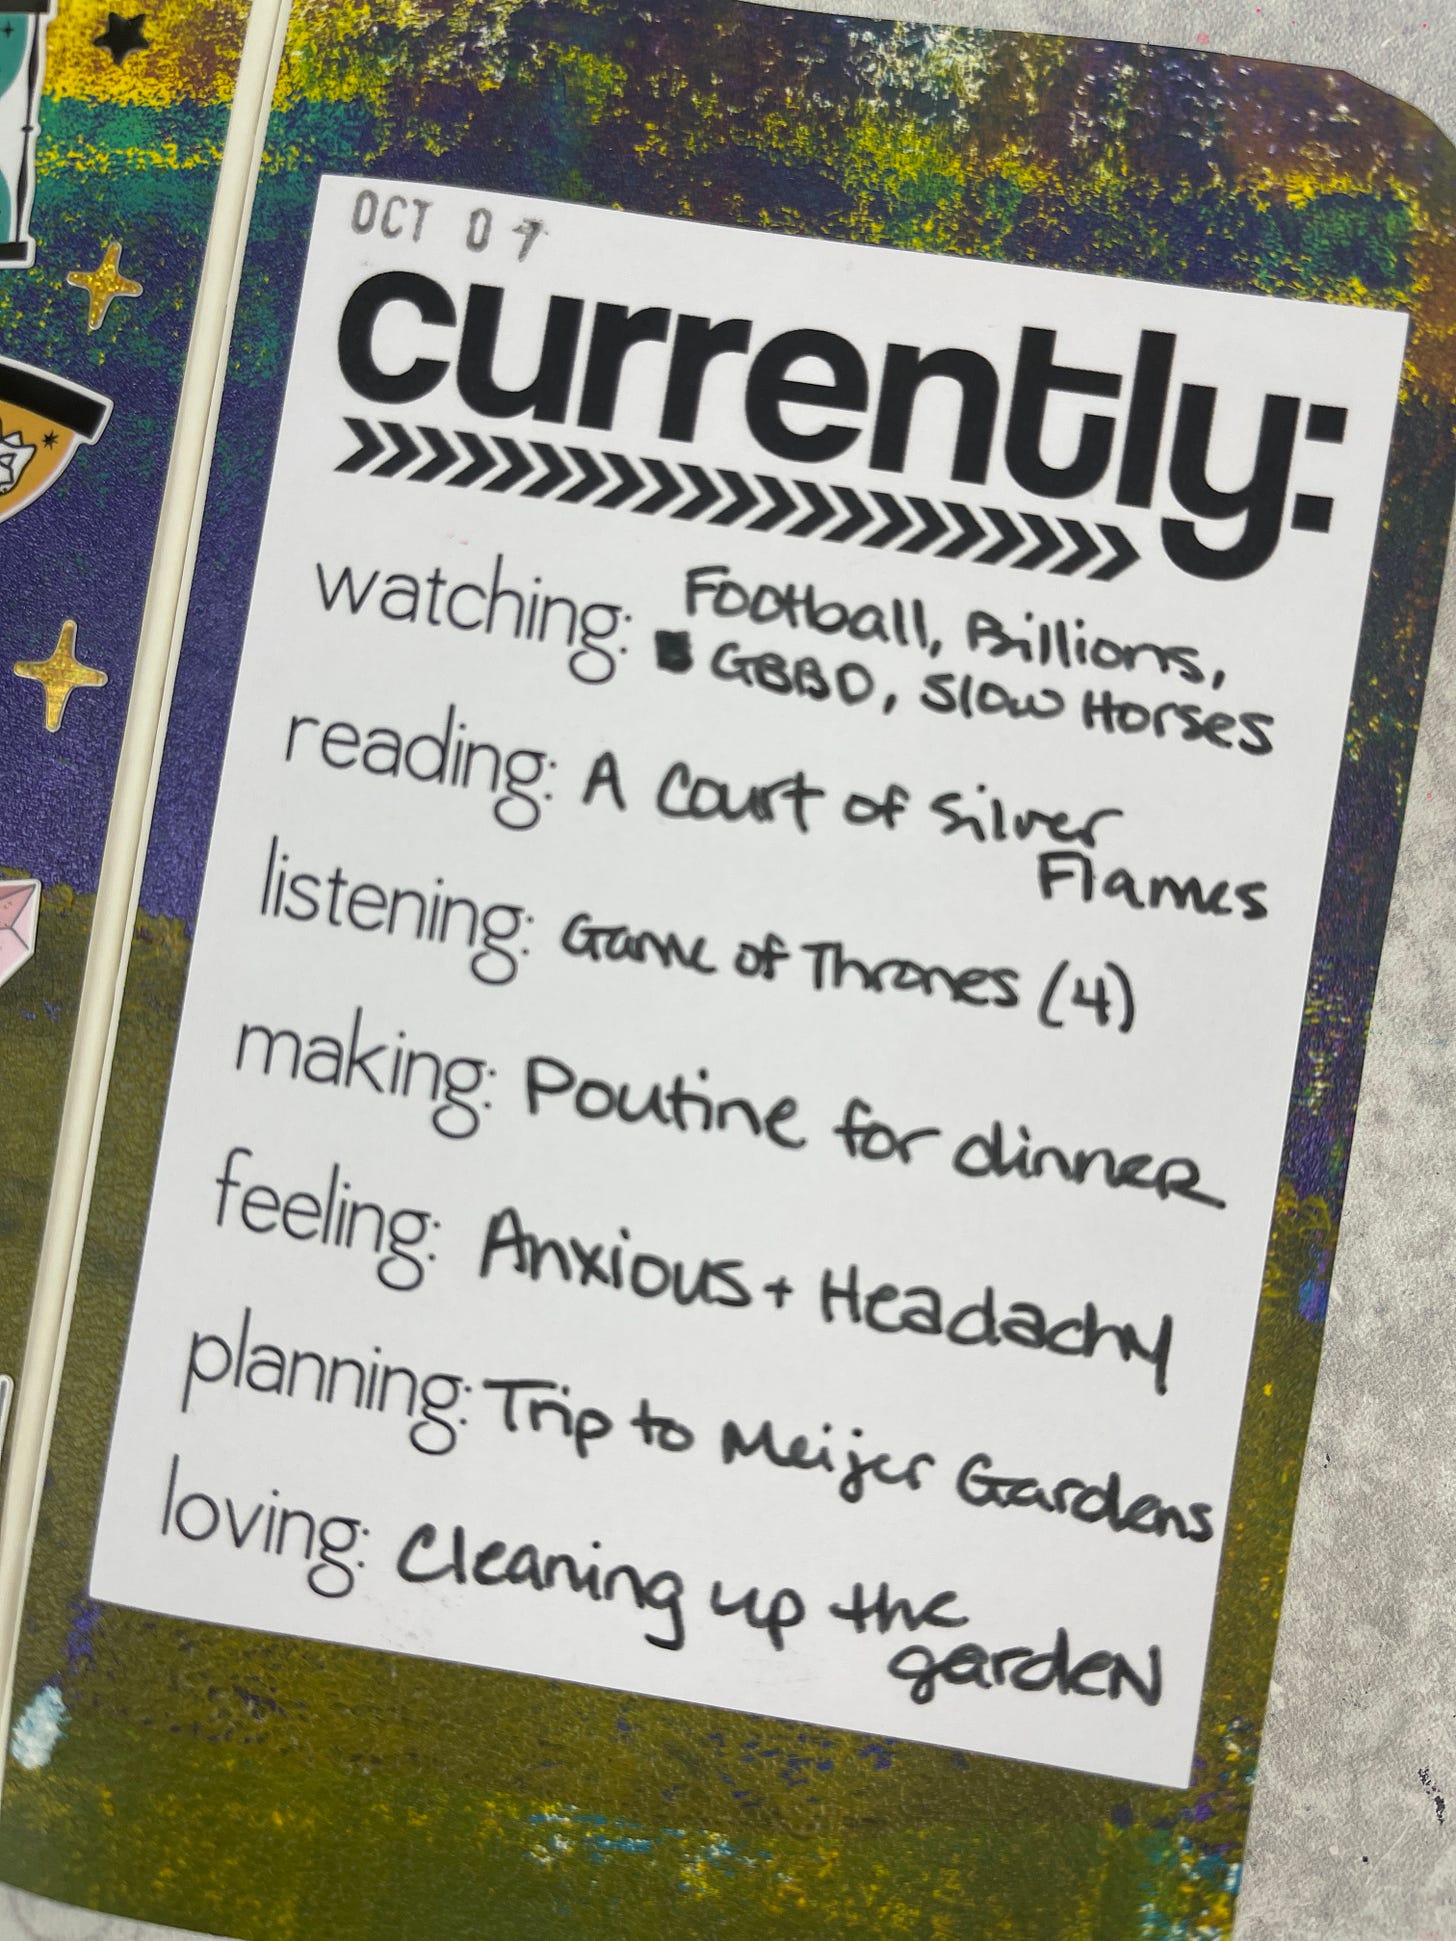 OCT 07
currently:
watching: Football, Billions,
GBBO, Slow Horses
reading: A Court of Silver
Flames
listening: Game of Thrones (4)
making: Poutine for dinner
feeling: Anxious + Headachy
planning: Trip to Meijer Gardens
loving: Cleaning up the
garden